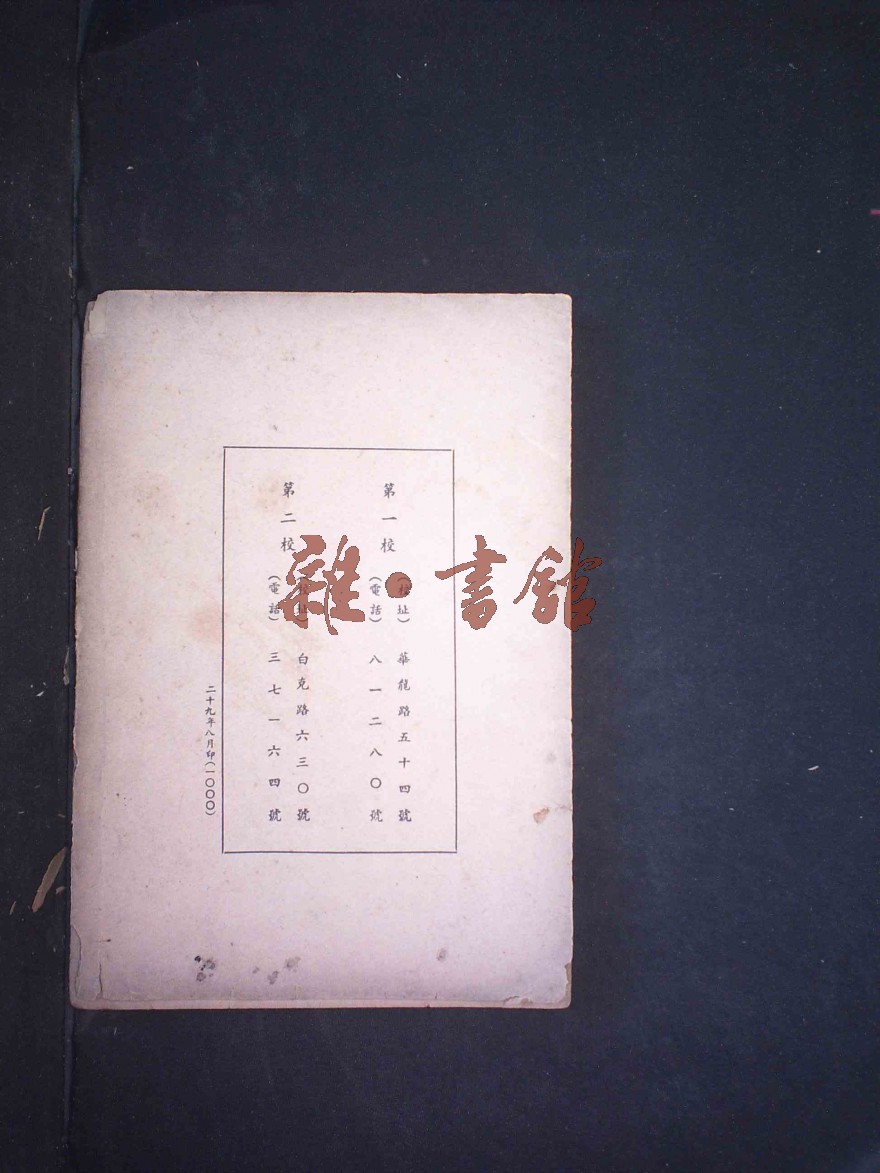 第一校
(校址) 華龍路五十四號
(電話) 八一二八〇號
第二校
(校址) 白克路六三〇號
(電話) 三七一六四號
二十九年八月印(一〇〇〇)
雜·書館